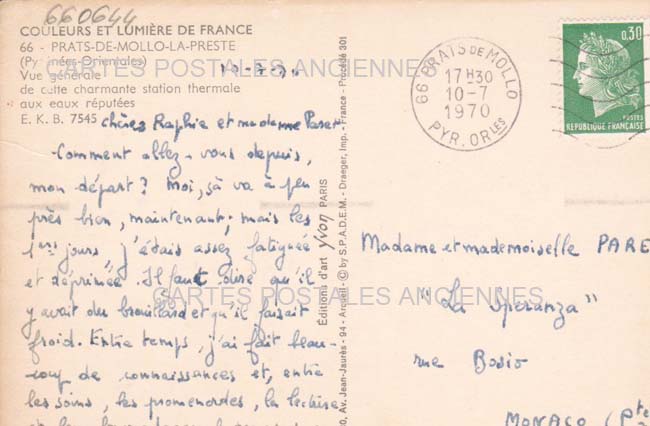 660644
COULEURS ET LUMIÈRE DE FRANCE
66 - PRATS-DE-MOLLO-LA-PRESTE
(Pyrénées Orientales)
Vue générale
de cette charmante station thermale
aux eaux réputées
E. K. B. 7545
CARTES POSTALES ANCIENNES
chères Raphie et madame Paret
Comment allez-vous depuis,
mon départ? Moi, çà va à peu
près bien, maintenant; mais les
1ers jours, j'étais assez fatiguée
et déprimée. Il faut dire qu'il
y avait du brouillard et qu'il faisait
froid. Entre temps, j'ai fait beau-
coup de connaissances et, entre
les soins, les promenades, la lecture
Editions d'art yvon PARIS
10, Av. Jean-Jaurès - 94 - Arcueil - © by S.P.A.D.E.M. - Draeger, Imp. - France - Procédé 301
66 PRATS DE MOLLO
17H30
10-7
1970
PYR. ORLES
0,30
POSTES
REPUBLIQUE FRANÇAISE
Madame et mademoiselle PARE
"La Speranza"
rue Bosio
MONACO (Pte
CARTES POSTALES ANCIENNES